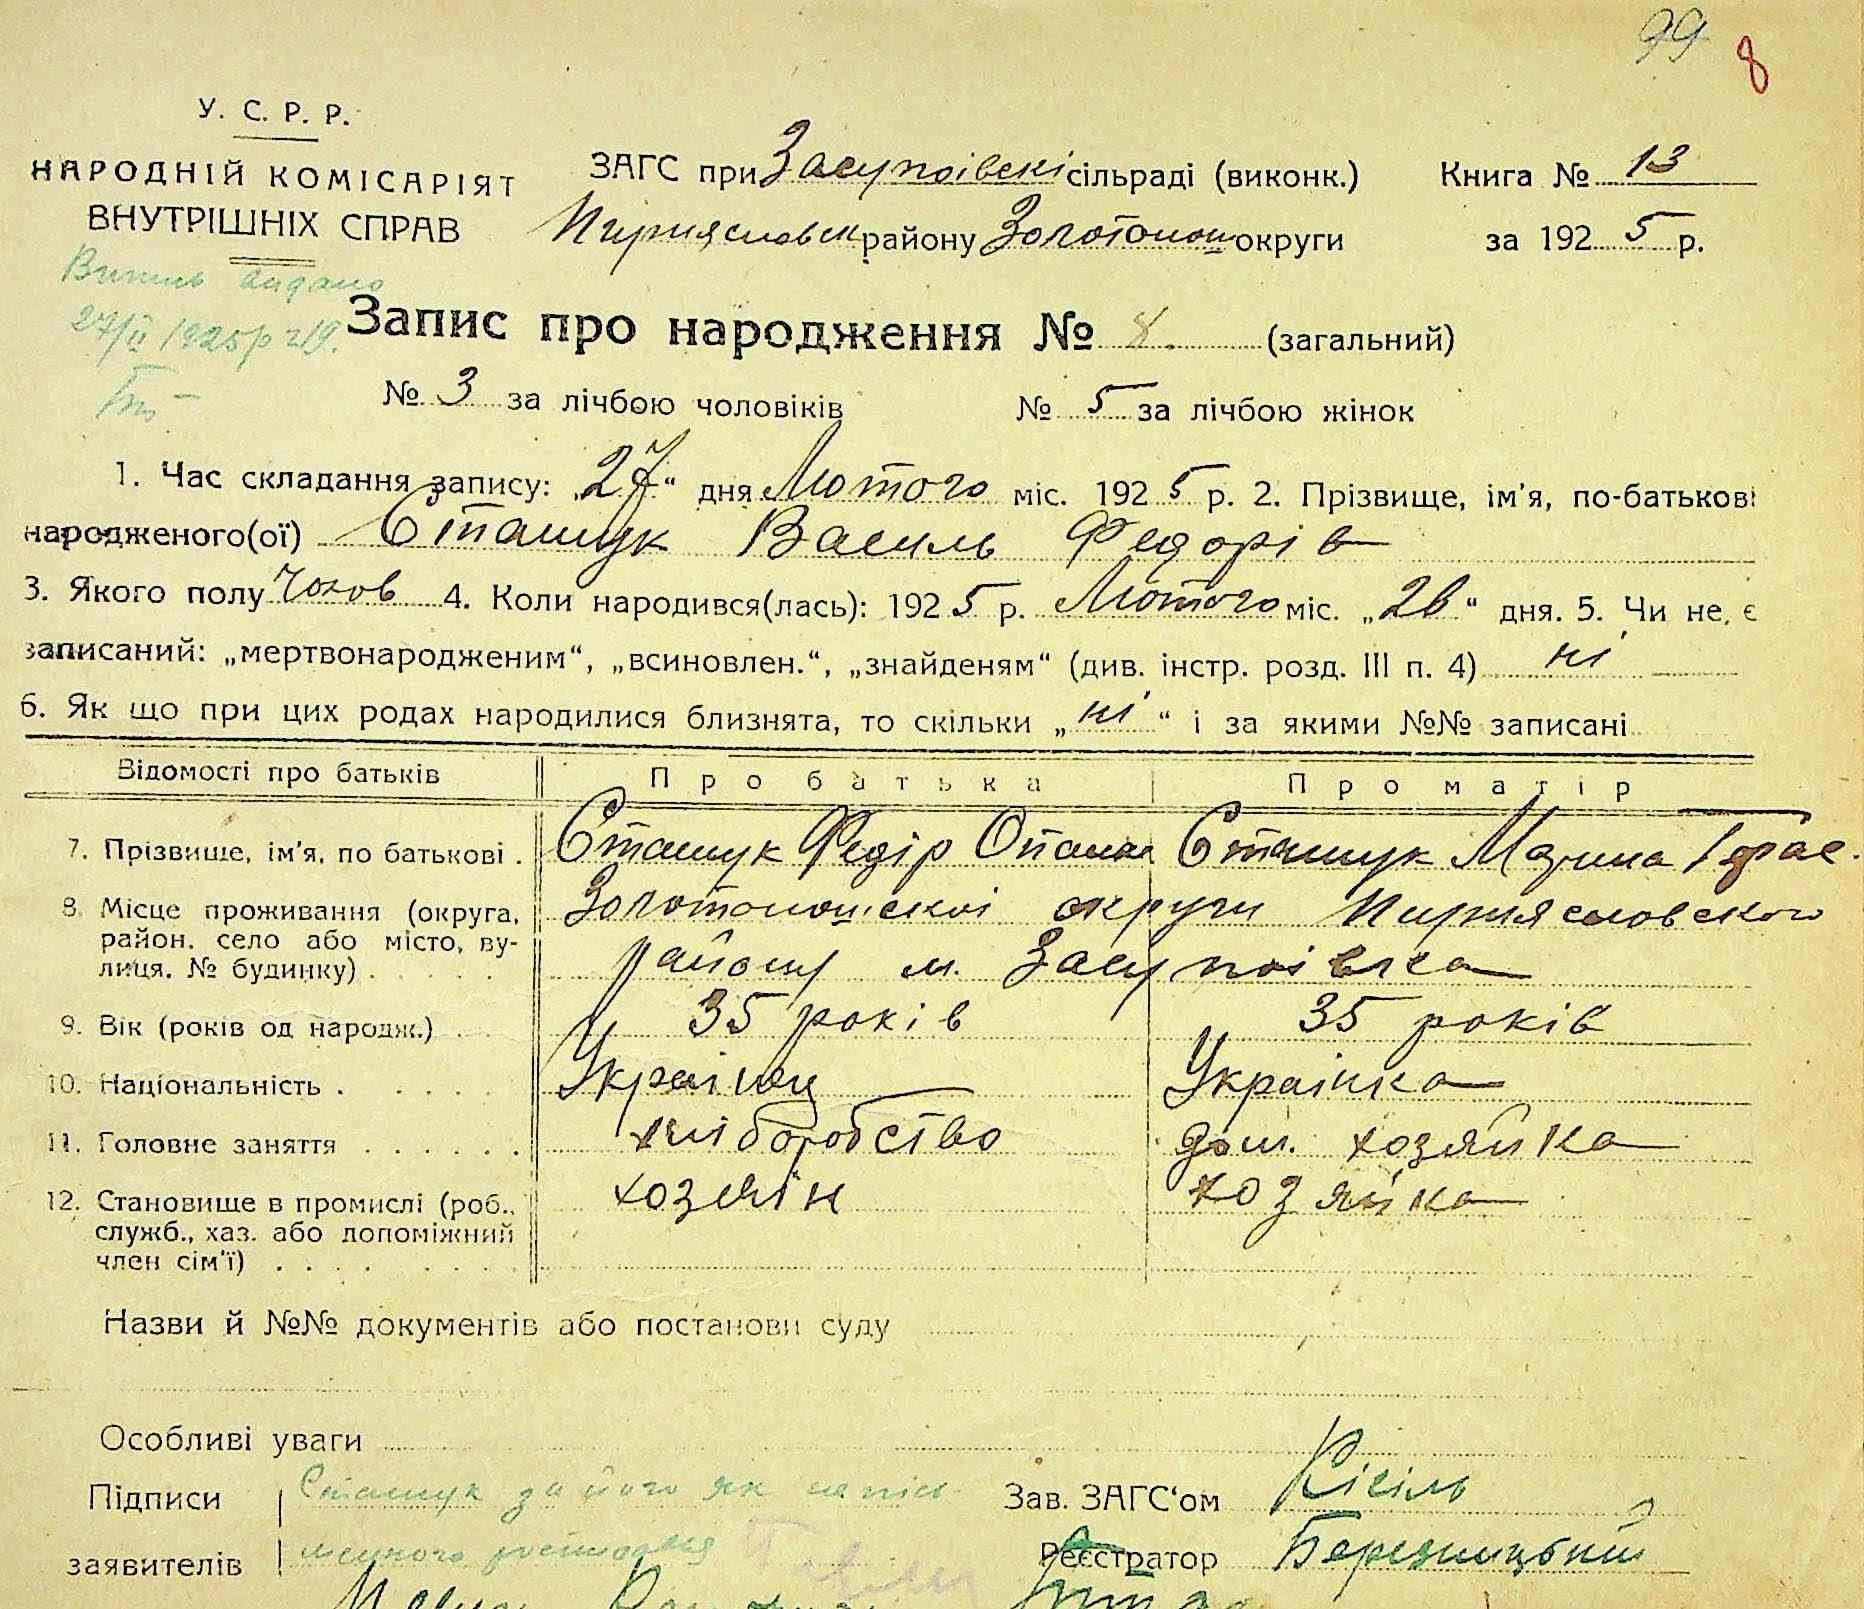 99 8
У. С. Р. Р.
НАРОДНІЙ КОМІСАРІЯТ
ВНУТРІШНІХ СПРАВ
ЗАГС при Засупоівскі сільраді (виконк.)
Книга № 13
Пириясловск району Золотонош округи
за 1925 р.
Витяг видано
27/II 1925 р
Запис про народження № 8. (загальний)
№ 3 за лічбою чоловіків № 5 за лічбою жінок
1. Час складання запису: „27“ дня Лютого міс. 1925 р. 2. Прізвище, ім'я, по-батькові
народженого(ої) Сташук Василь Федорів
3. Якого полу Чолов 4. Коли народився(лась): 1925 р. Лютого міс. „26“ дня. 5. Чи не є
записаний: „мертвонародженим“, „всиновлен.“, „знайденям“ (див. інстр. розд. III п. 4) ні
6. Як що при цих родах народилися близнята, то скільки „ні“ і за якими №№ записані
Відомості про батьків Про батька Про матір
7. Прізвище, ім'я, по батькові . Сташук Федір Опанас Сташук Марина Герас.
8. Місце проживання (округа, Золотоношскоі округи Пириясловского
район, село або місто, ву-
лиця, № будинку) . . . . . району м. Засупоівка
9. Вік (років од народж.) . . 35 років 35 років
10. Національність . . . . . Украінец Украінка
11. Головне заняття . . . . . . хліборобство дом. хозяйка
12. Становище в промислі (роб., хозяін хозяйка
служб., хаз. або допоміжний
член сім'ї) . . . . . . . .
Назви й №№ документів або постанови суду
Особливі уваги
Підписи Сташук за його як
заявителів
Зав. ЗАГС'ом Кісіль
Реєстратор